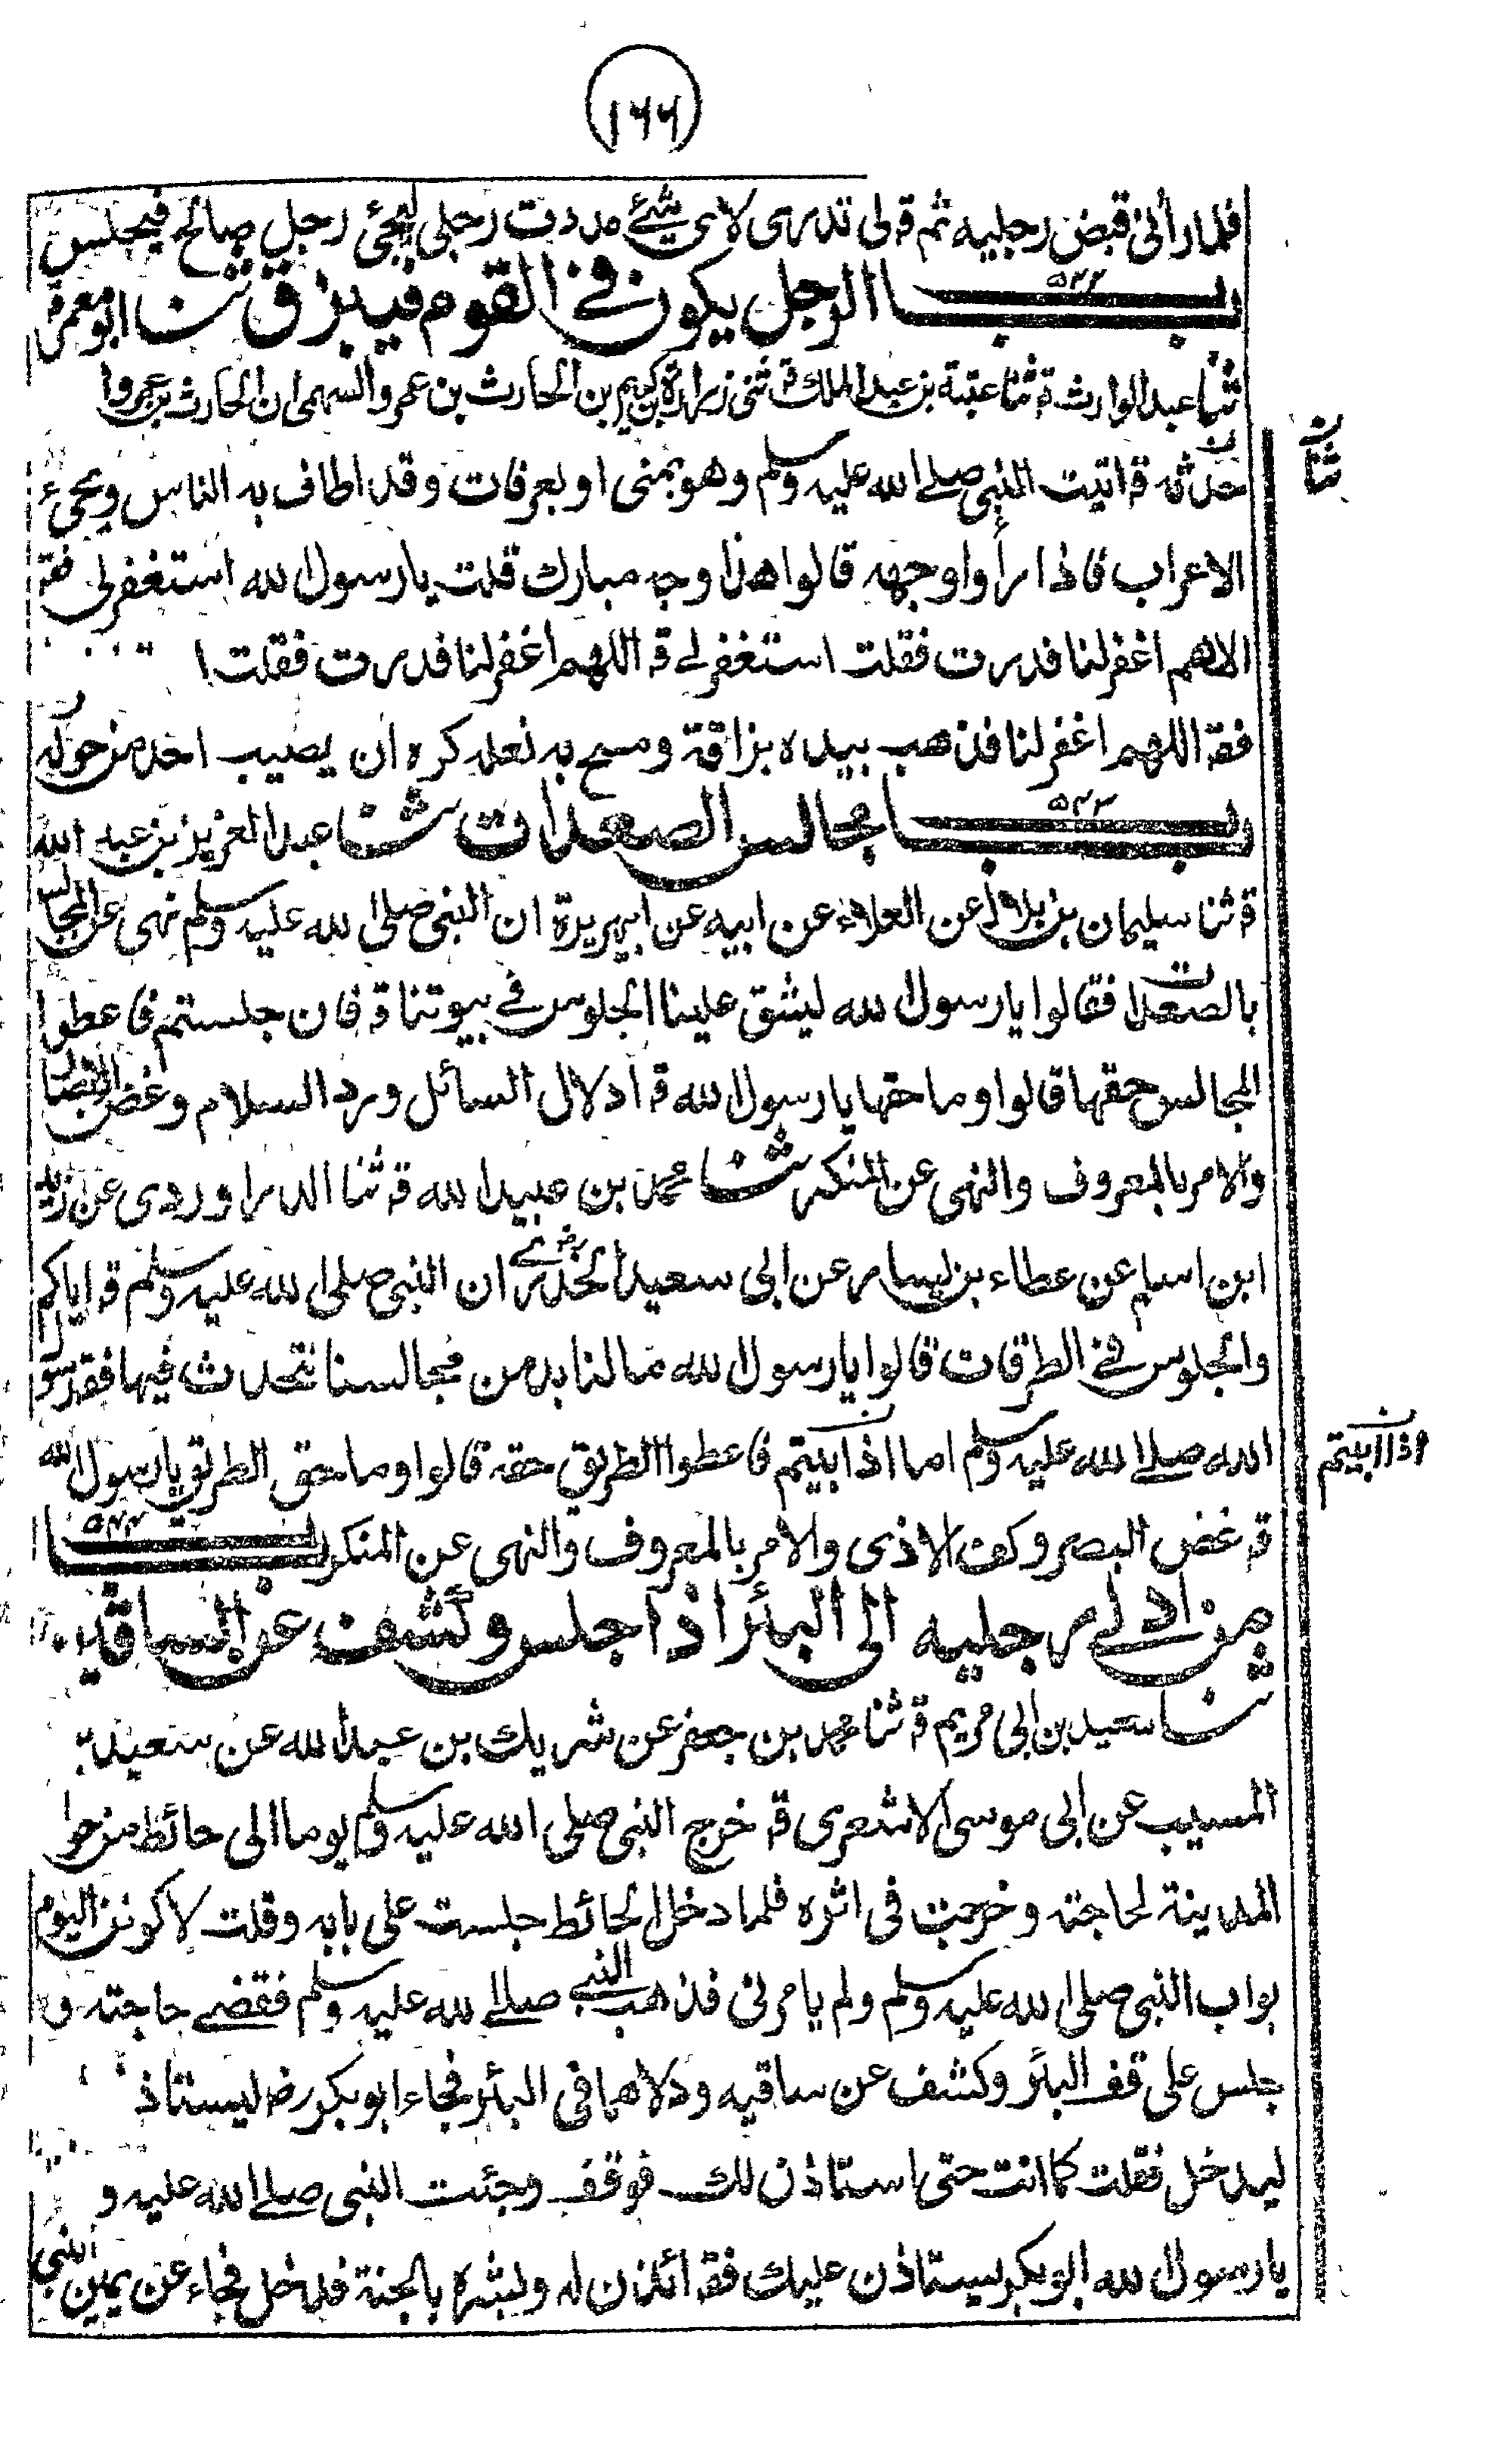 ١٦٦
فلما رأنی قبض رجلیه ثم ق لی تدری لای شیئ مددت رجلی لیجئ رجل صالح فیجلس
باب ٥٤٢ الرجل یکون فی القوم فیبزق ثنا ابو معمر ق
ثنا عبد الوارث ق ثنا عتبة بن عبد الملک ق ثنی زرارة بن کریم بن الحارث بن عمرو السهمی ان الحارث بن عمروا
حدثه ق اتیت النبی صلے الله علیه وسلم وهو بمنی او بعرفات وقد اطاف به الناس ویجیء
ثنا
الاعراب فاذا رأوا وجهه قالوا هذا وجه مبارک قلت یا رسول الله استغفر لی فق
اللهم اغفر لنا فدرت فقلت استغفر لے ق اللهم اغفر لنا فدرت فقلت ا
فق اللهم اغفر لنا فذهب بیده بزاقه ومسح به نعله کره ان یصیب احد من حوله
باب ٥٤٣ مجالس الصعدات ثنا عبد العزیز بن عبد الله
ق ثنا سلیمان بن بلال عن العلاء عن ابیه عن ابی هریرة ان النبی صلی الله علیه وسلم نهی عن المجالس
بالصعدات فقالوا یا رسول الله لیشق علینا الجلوس فے بیوتنا ق فان جلستم فاعطوا
المجالس حقها قالوا وما حقها یا رسول الله ق ادلال السائل ورد السلام وغض الابصار
والامر بالمعروف والنهی عن المنکر ثنا محمد بن عبید الله ق ثنا الدراوردی عن زید
ابن اسلم عن عطاء بن یسار عن ابی سعید الخدری رض ان النبی صلی الله علیه وسلم ق ایاکم
والجلوس فے الطرقات قالوا یا رسول الله ما لنا بد من مجالسنا نتحدث فیها فق رسول
الله صلے الله علیه وسلم اما اذا ابیتم فاعطوا الطریق حقه قالوا وما حق الطریق یا رسول الله
اذ ابیتم
ق غض البصر وکف الاذی والامر بالمعروف والنهی عن المنکر باب ٥٤٤
من ادلے رجلیه الی البئر اذا جلس وکشف عن الساقین
ثنا سعید بن ابی مریم ق ثنا محمد بن جعفر عن شریک بن عبد الله عن سعید بن
المسیب عن ابی موسی الاشعری ق خرج النبی صلی الله علیه وسلم یوما الی حائط من حوا
المدینة لحاجته وخرجت فی اثره فلما دخل الحائط جلست علی بابه وقلت لاکونن الیوم
بواب النبی صلی الله علیه وسلم ولم یامرنی فذهب النبی صلے الله علیه وسلم فقضے حاجته و
جلس علی قف البئر وکشف عن ساقیه ودلاهما فی البئر فجاء ابو بکر رض لیستاذ
لیدخل فقلت کما انت حتی استاذن لک فوقف وجئت النبی صلے الله علیه و
یا رسول الله ابو بکر یستاذن علیک فق ائذن له وبشره بالجنة فدخل فجاء عن یمین النبی